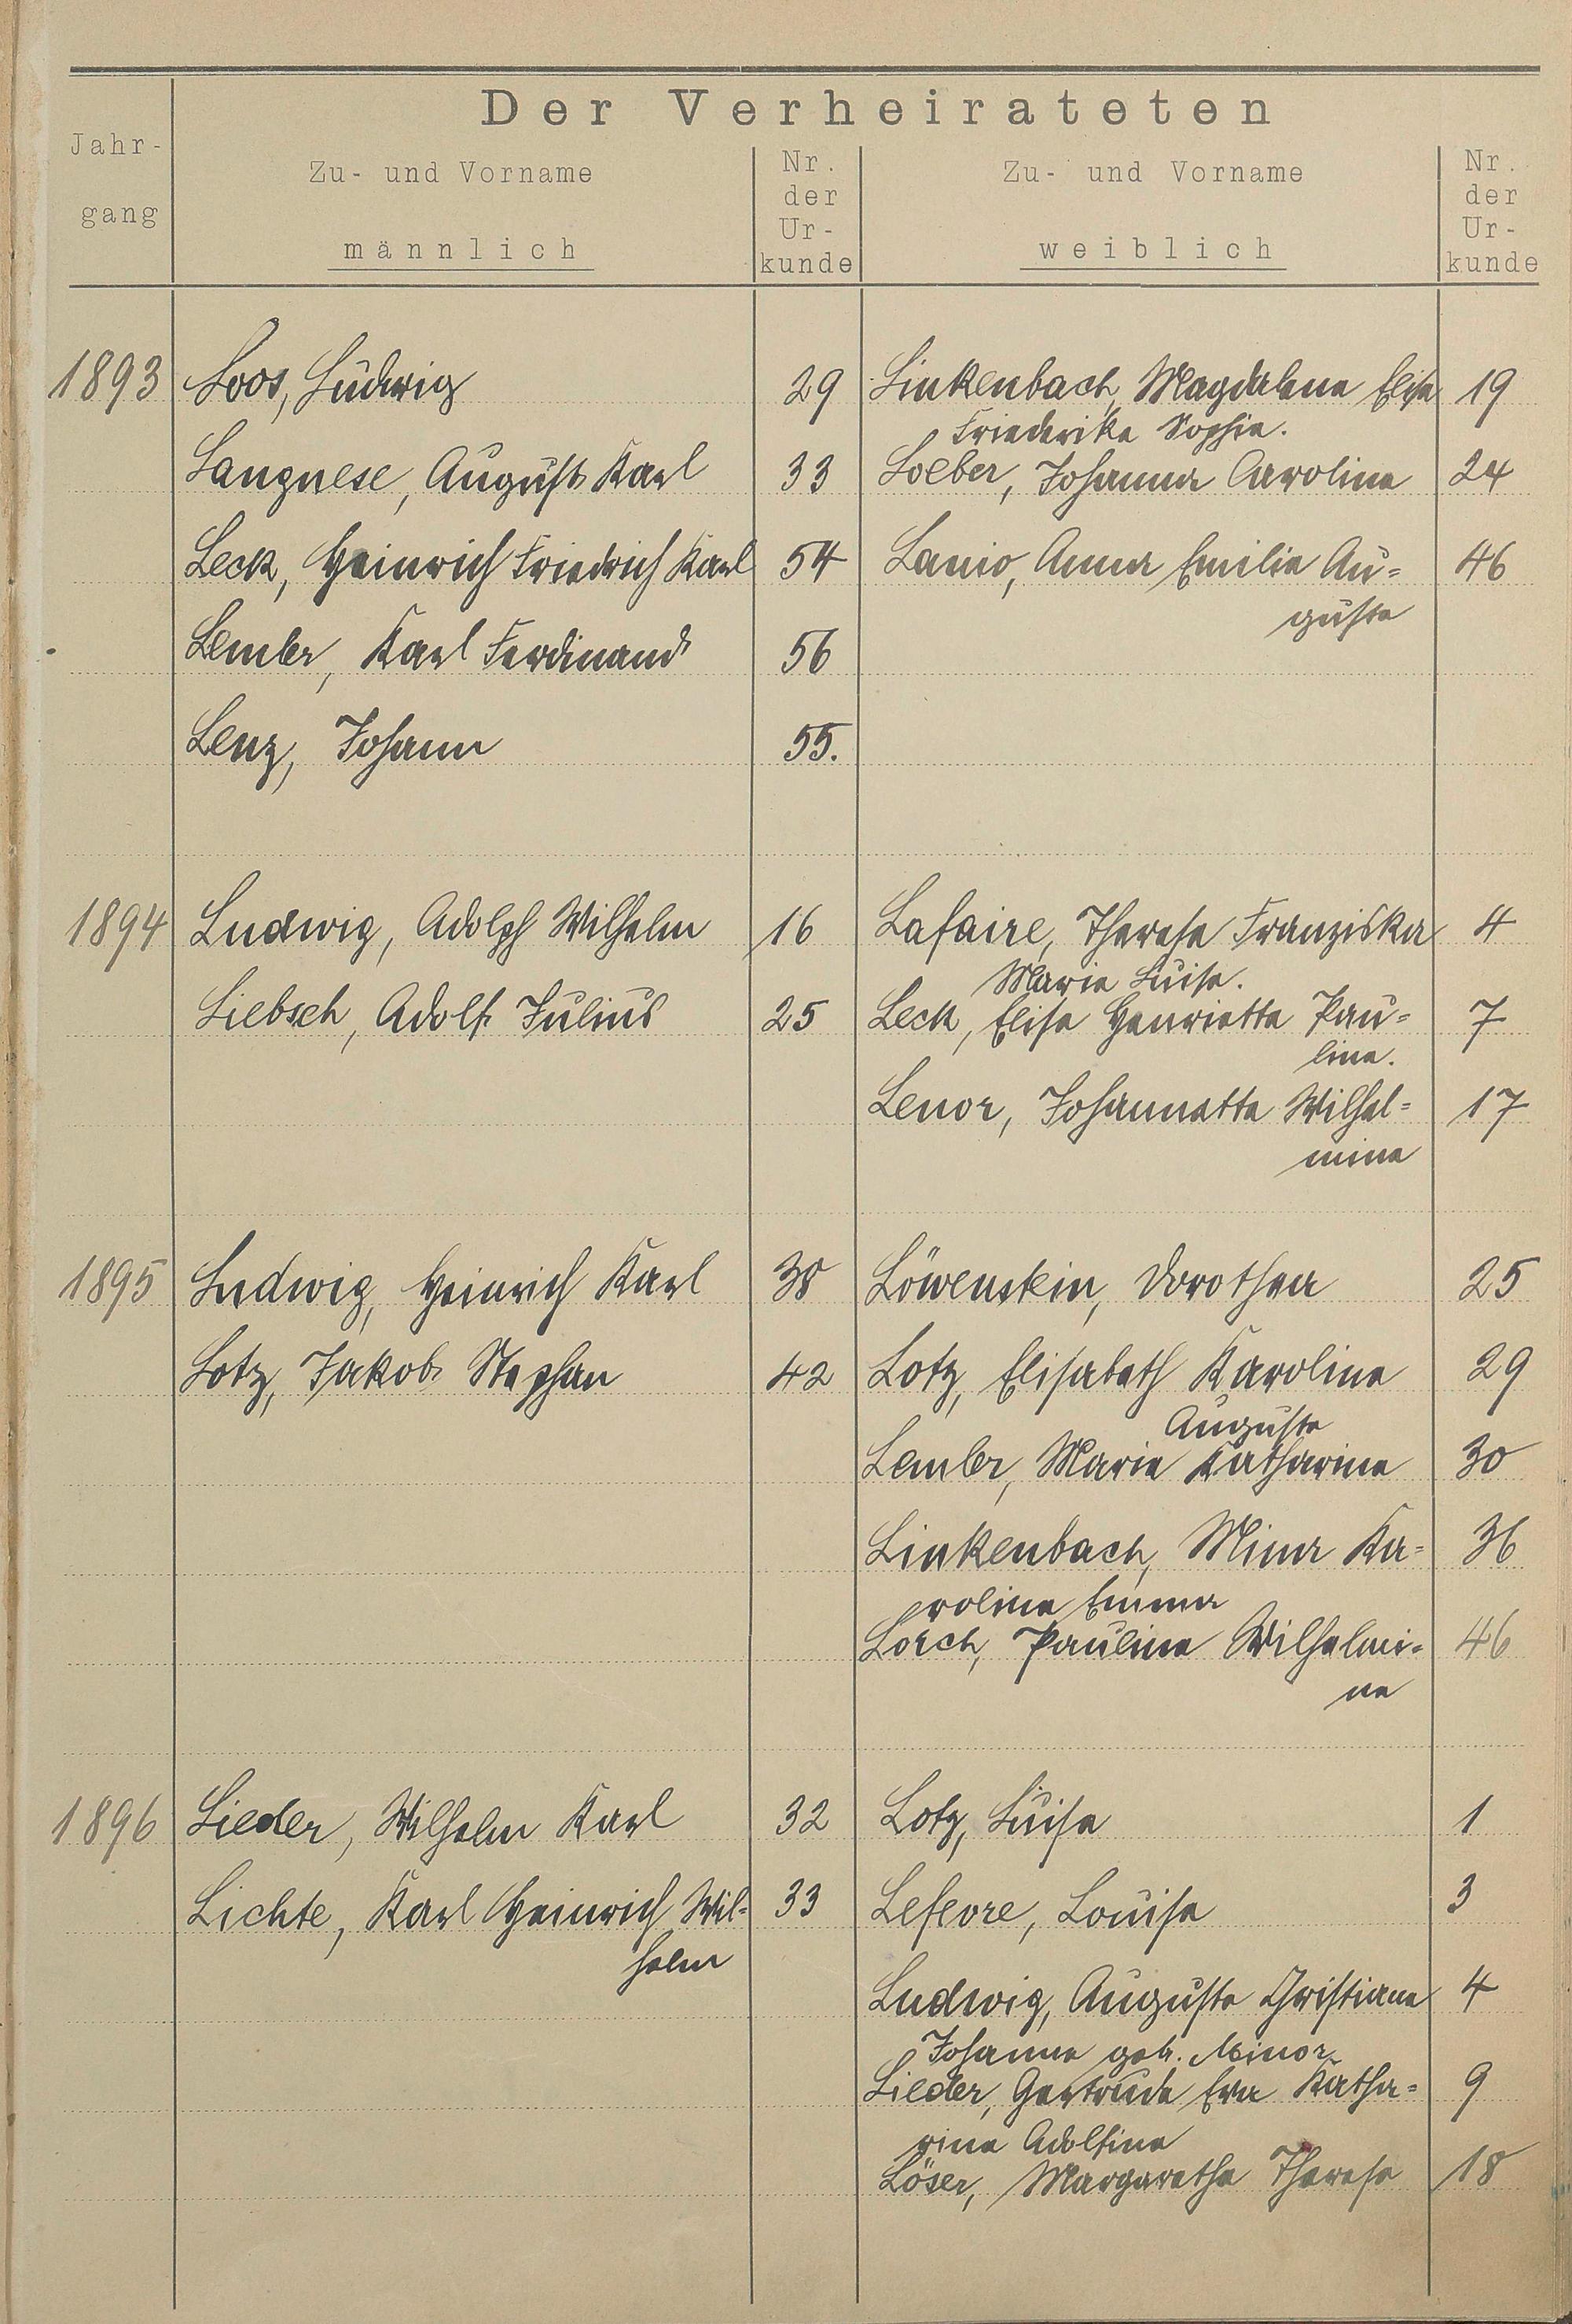 Der Verheirateten
Jahr-
gang
Zu- und Vorname
männlich
Nr.
der
Ur-
kunde
Zu- und Vorname
weiblich
Nr.
der
Ur-
kunde
1893 Loos, Ludwig 29 Linkenbach, Magdalene Elise 19
Friederike Sophie.
Langnese, August Karl 33 Loeber, Johanna Caroline 24
Leck, Heinrich Friedrich Karl 54 Lanio, Anna Emilie Au= 46
guste
Lember, Karl Ferdinand 56
Lenz, Johann 55.
1894 Ludwig, Adolph Wilhelm 16 Lafaire, Therese Franziska 4
Marie Luise.
Liebsch, Adolf Julius 25 Leck, Elise Henriette Pau= 7
line.
Lenor, Johannette Wilhel= 17
mine
1895 Ludwig, Heinrich Karl 38 Löwenstein, Dorothea 25
Lotz, Jakob Stephan 42 Lotz, Elisabeth Karoline 29
Auguste
Lember, Marie Katharine 30
Linkenbach, Mina Ka= 36
roline Emma
Lorch, Pauline Wilhelmi= 46
ne
1896 Lieder, Wilhelm Karl 32 Lotz, Luise 1
Lichte, Karl Heinrich Wil= 33 Lefevre, Louise 3
helm
Ludwig, Auguste Christiane 4
Johanna geb. Minor
Lieder, Gertrude Eva Katha= 9
rine Adolfine
Löser, Margarethe Therese 18